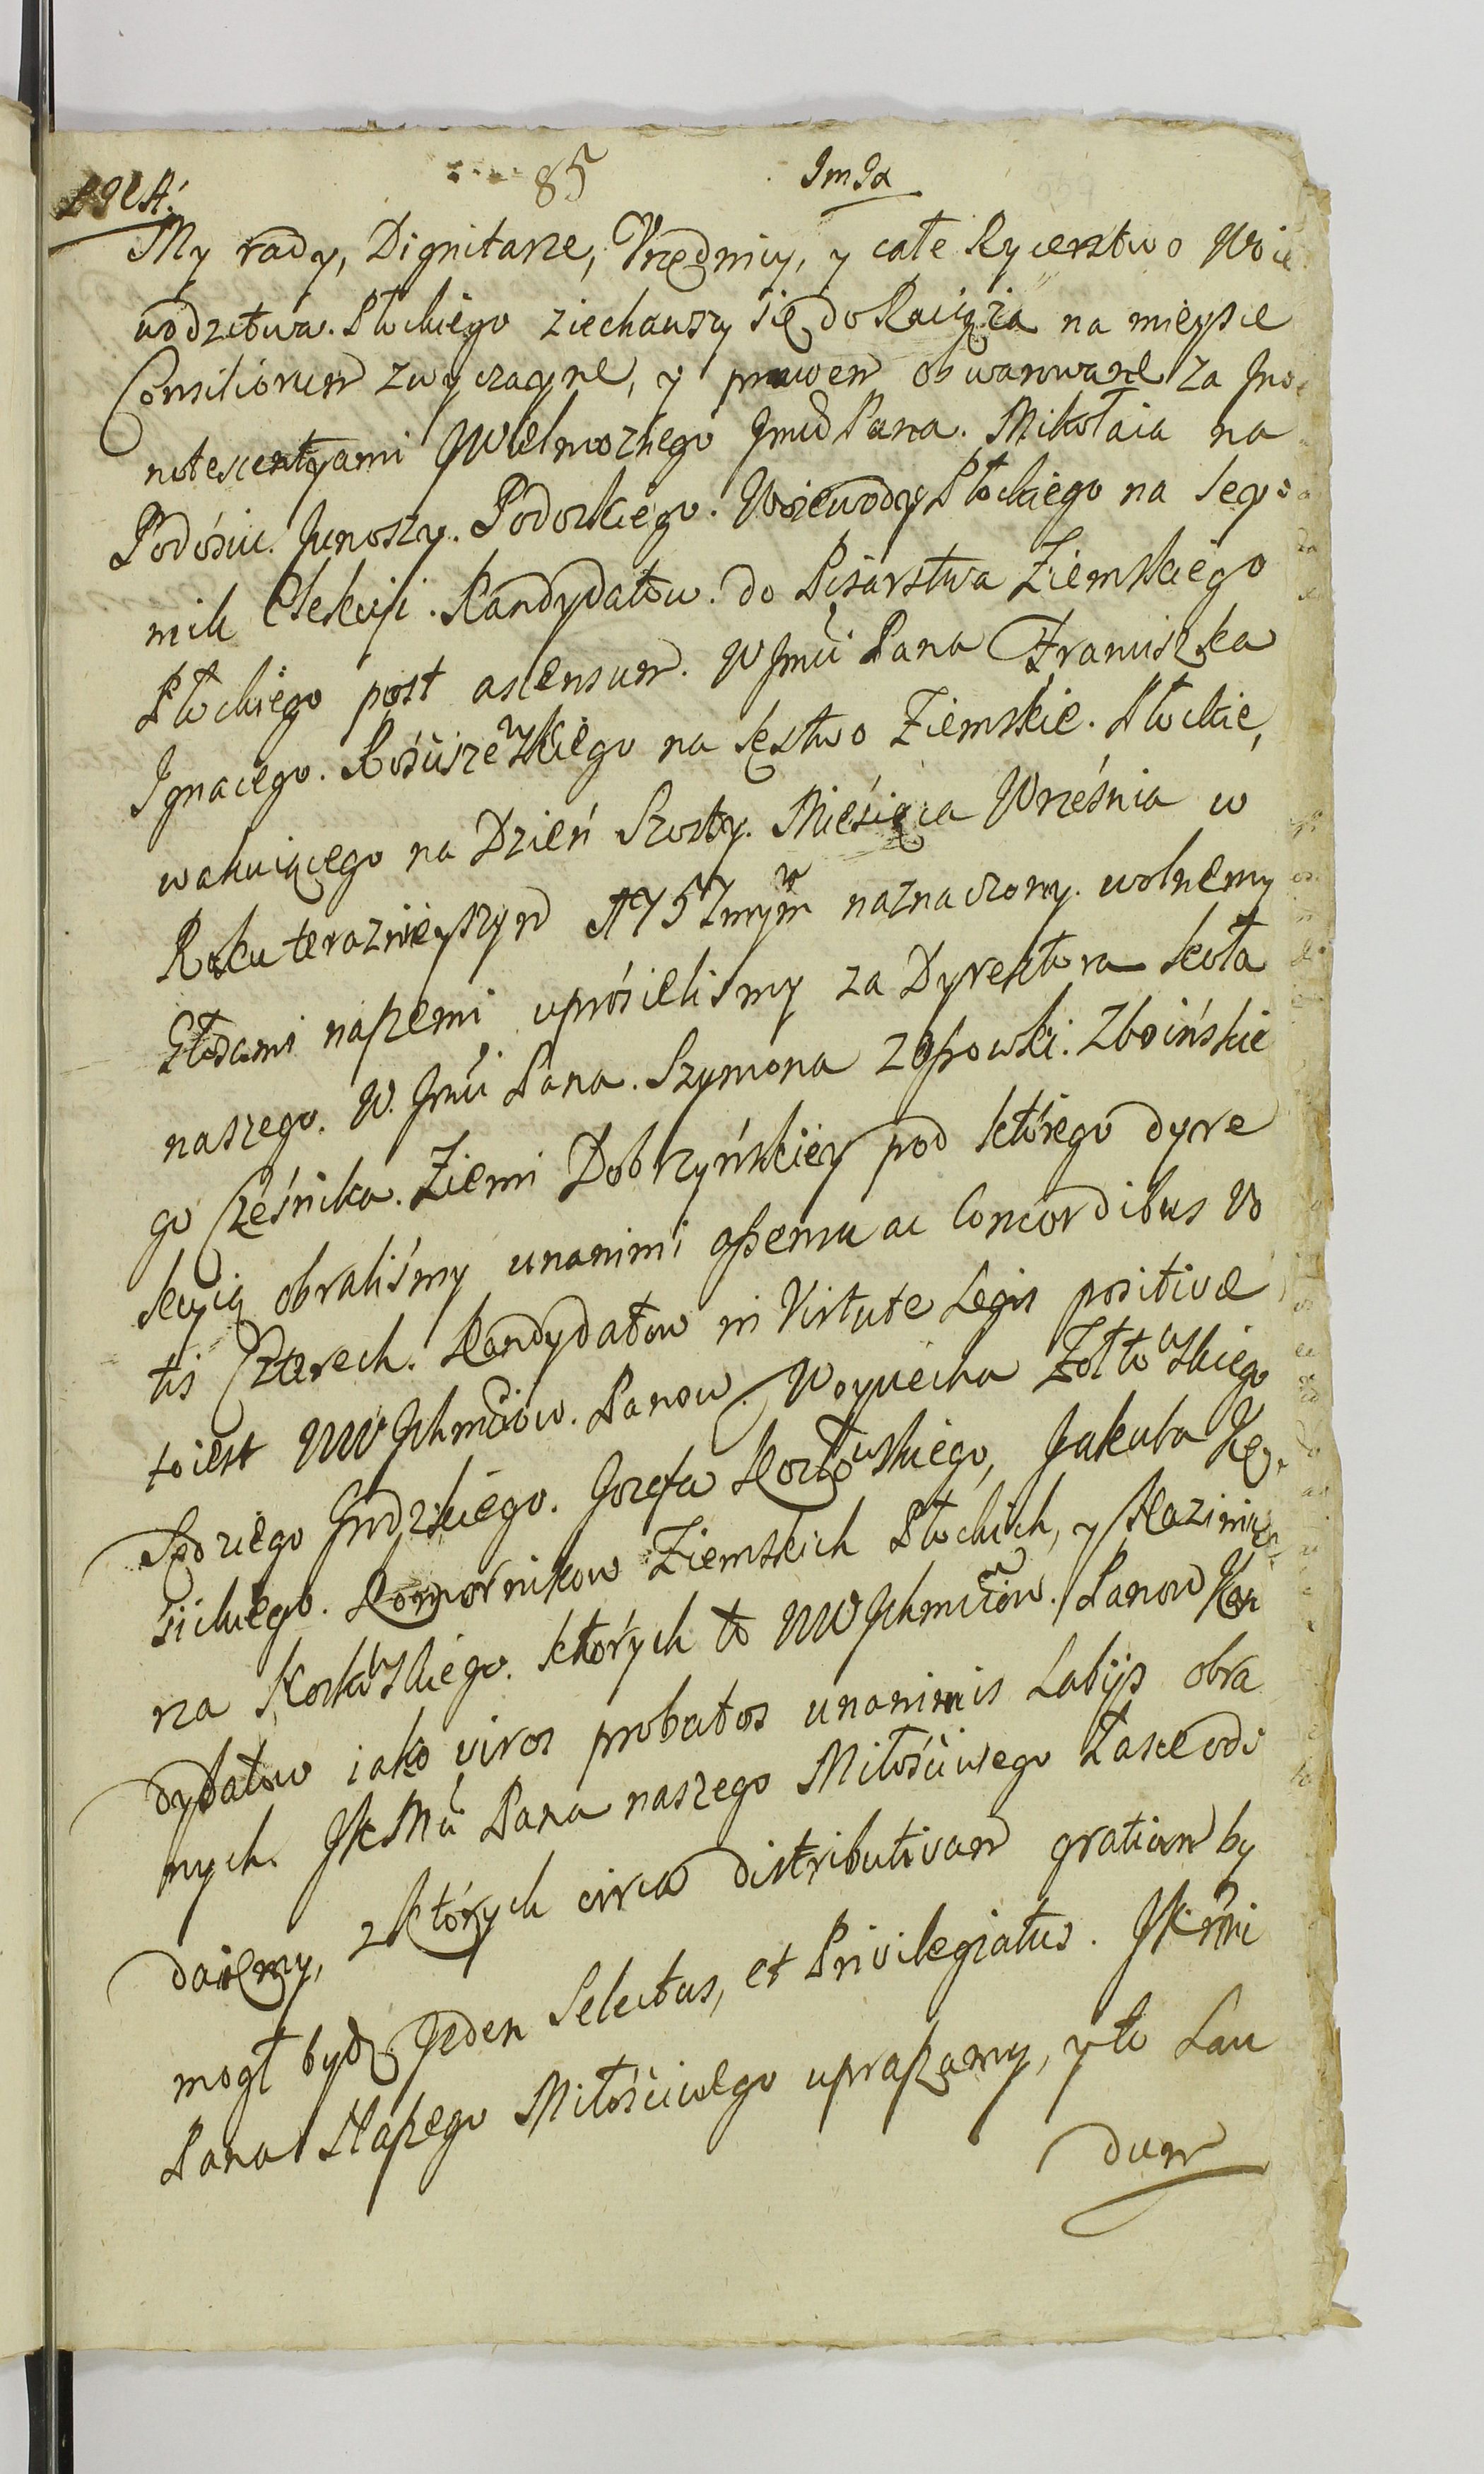 85 ImJa
My rady, Dignitarze, Vrzędnicy, y całe Rycerstwo Woie
wodztwa Płockiego ziechawszy się do Raciąża na mieysce
Consiliorum zwyczayne, y prawem obwarowane za Jnno
notescentyami JWielmożnego Jmci Pana Mikołaia na
Podosiu Junoszy Podoskiego Woiewody Płockiego na Seym
mik Elekcyi Kandydatow do Pisarstwa Ziemskiego
Płockiego post ascensum W Jmci Pana Franciszka
Ignacego Rościszewskiego na Sęstwo Ziemskie Płockie,
wakuiącego na Dzień Szosty Miesiąca Września w
Roku teraznieyszym 1757mym naznaczony wolnemy
Głosami naszemi uprosieliśmy za Dyrektora koła
naszego W. Jmci Pana Szymona z Ossowki Zboińskie
go Cześnika Ziemi Dobrzyńskiey pod którego dyre
kcyią obraliśmy unanimi assensu ac Concordibus Vo
tis Czterech Kandydatow in Virtute Legis positivae
to iest WW Jchmciow Panow Woyciecha Zołtowskiego
Sędziego Grodzkiego Jozefa Kozłowskiego, Jakuba Kę
sickiego Komornikow Ziemskich Płockich, y Kazimie
rza Kossowskiego których to WW Jchmciow Panow Kan
dydatow iako viros probatos unanimis Labijs obra
nych JKMci Pana naszego Miłościwego Łasce odd
daiemy, z których circa distributivam gratiam by
mogł bydź Jeden Selectus, et Privilegiatus JKMci
Pana Naszego Miłościwego upraszamy, y to Lau
dum